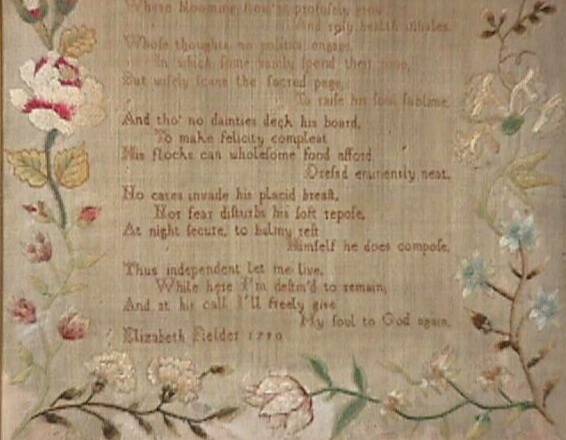 Where blooming
And rosy health inhales.
Whose thoughts no politics engage,
In which some vainly spend their time,
But wisely scans the sacred page,
To raise his soul sublime.
And tho' no dainties deck his board,
To make felicity compleat
His flocks can wholesome food afford
Dress'd eminently neat.
No cares invade his placid breast,
Nor fear disturbs his soft repose,
At night secure, to balmy rest
Himself he does compose.
Thus independent let me live,
While here I'm destin'd to remain,
And at his call I'll freely give
My soul to God again.
Elizabeth Fielder